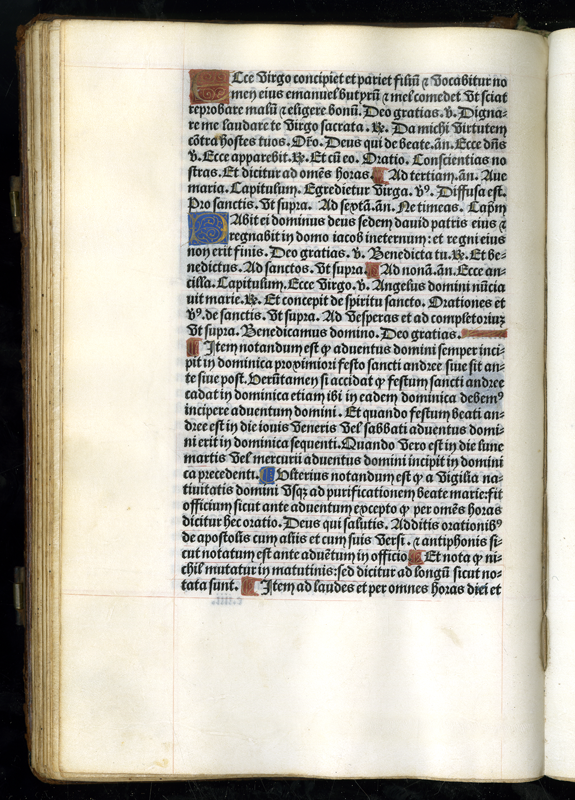 Ecce Virgo concipiet et pariet filiū ⁊ Vocabitur no
men eius emanuel butyrū ⁊ mel comedet Vt sciat
reprobare malū ⁊ eligere bonū. Deo gratias. ℣. Digna-
re me laudare te Virgo sacrata. ℟. Da michi Virtutem
cōtra hostes tuos. Orō. Deus qui de beate. añ. Ecce dñs
℣. Ecce apparebit. ℟. Et cū eo. Oratio. Conscientias no
stras. Et dicitur ad omēs horas. Ad tertiam. añ. Aue
maria. Capitulum. Egredietur Virga. ℣ꝰ. Diffusa est.
Pro sanctis. Vt supra. Ad sextā. añ. Ne timeas. Capm̄
Dabit ei dominus deus sedem dauid patris eius ⁊
regnabit in domo iacob in eternum: et regni eius
non erit finis. Deo gratias. ℣. Benedicta tu. ℟. Et be-
nedictus. Ad sanctos. Vt supra. Ad nonā. añ. Ecce an-
cilla. Capitulum. Ecce Virgo. ℣. Angelus domini nūcia
uit marie. ℟. Et concepit de spiritu sancto. Orationes et
℣ꝰ. de sanctis. Vt supra. Ad Vesperas et ad completoriuꝫ
Vt supra. Benedicamus domino. Deo gratias.
Item notandum est ꝙ aduentus domini semper inci-
pit in dominica proximiori festo sancti andree siue sit an-
te siue post. Verūtamen si accidat ꝙ festum sancti andree
cadat in dominica etiam ibi in eadem dominica debemꝰ
incipere aduentum domini. Et quando festum beati an-
dree est in die iouis Veneris Vel sabbati aduentus domi-
ni erit in dominica sequenti. Quando Vero est in die lune
martis Vel mercurii aduentus domini incipit in domini
ca precedenti. Vlterius notandum est ꝙ a Vigilia na-
tiuitatis domini Vsqꝫ ad purificationem beate marie: fit
officium sicut ante aduentum excepto ꝙ per omēs horas
dicitur hec oratio. Deus qui salutis. Additis orationibꝰ
de apostolis cum aliis et cum suis Versi. ⁊ antiphonis si-
cut notatum est ante aduētum in officio. Et nota ꝙ ni-
chil mutatur in matutinis: sed dicitur ad longū sicut no-
tata sunt. Item ad laudes et per omnes horas diei et